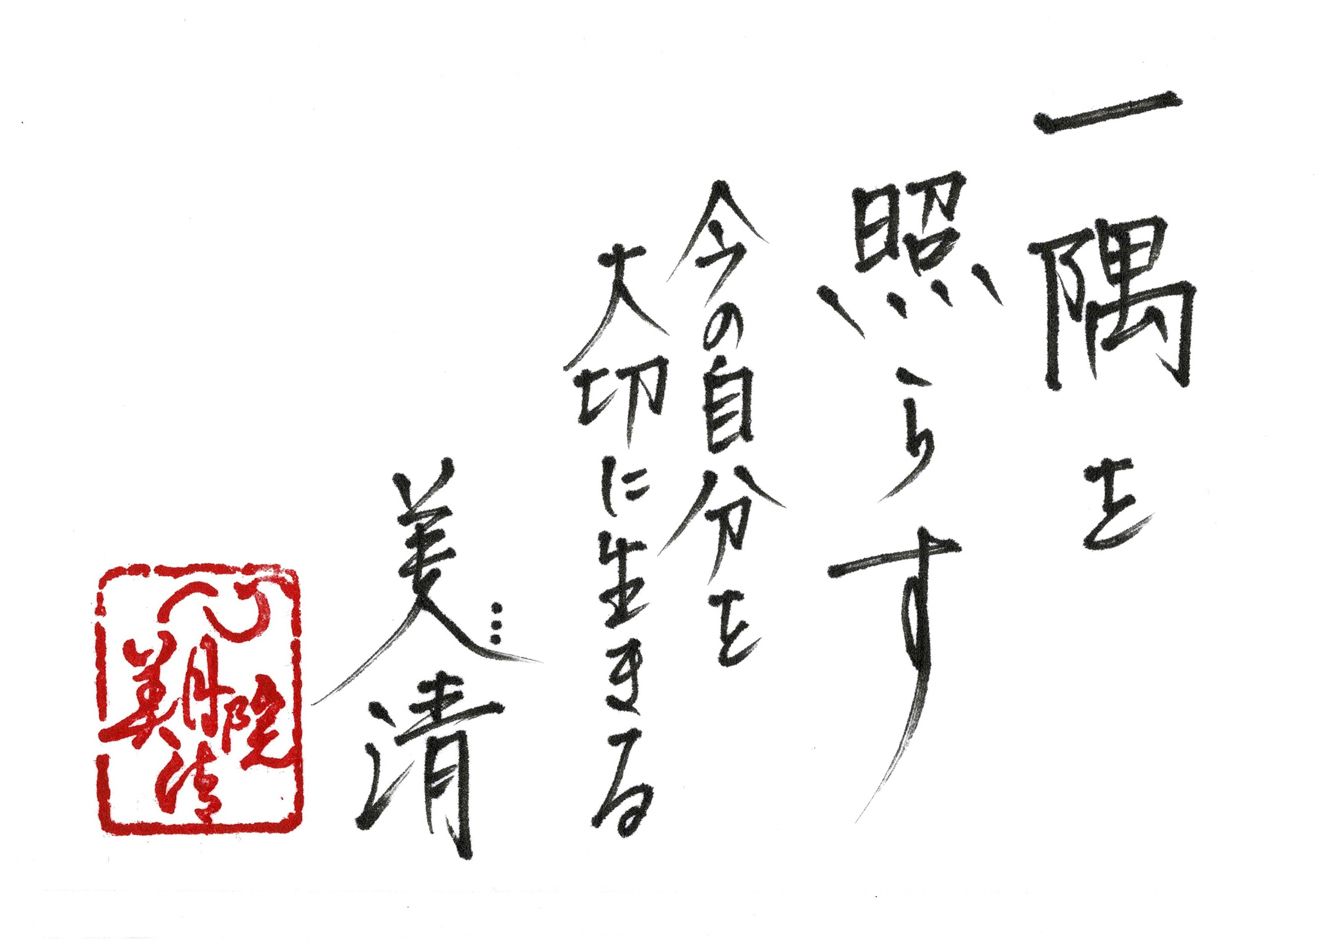 一隅を
照らす
今の自分を
大切に生きる
美清
院
美清